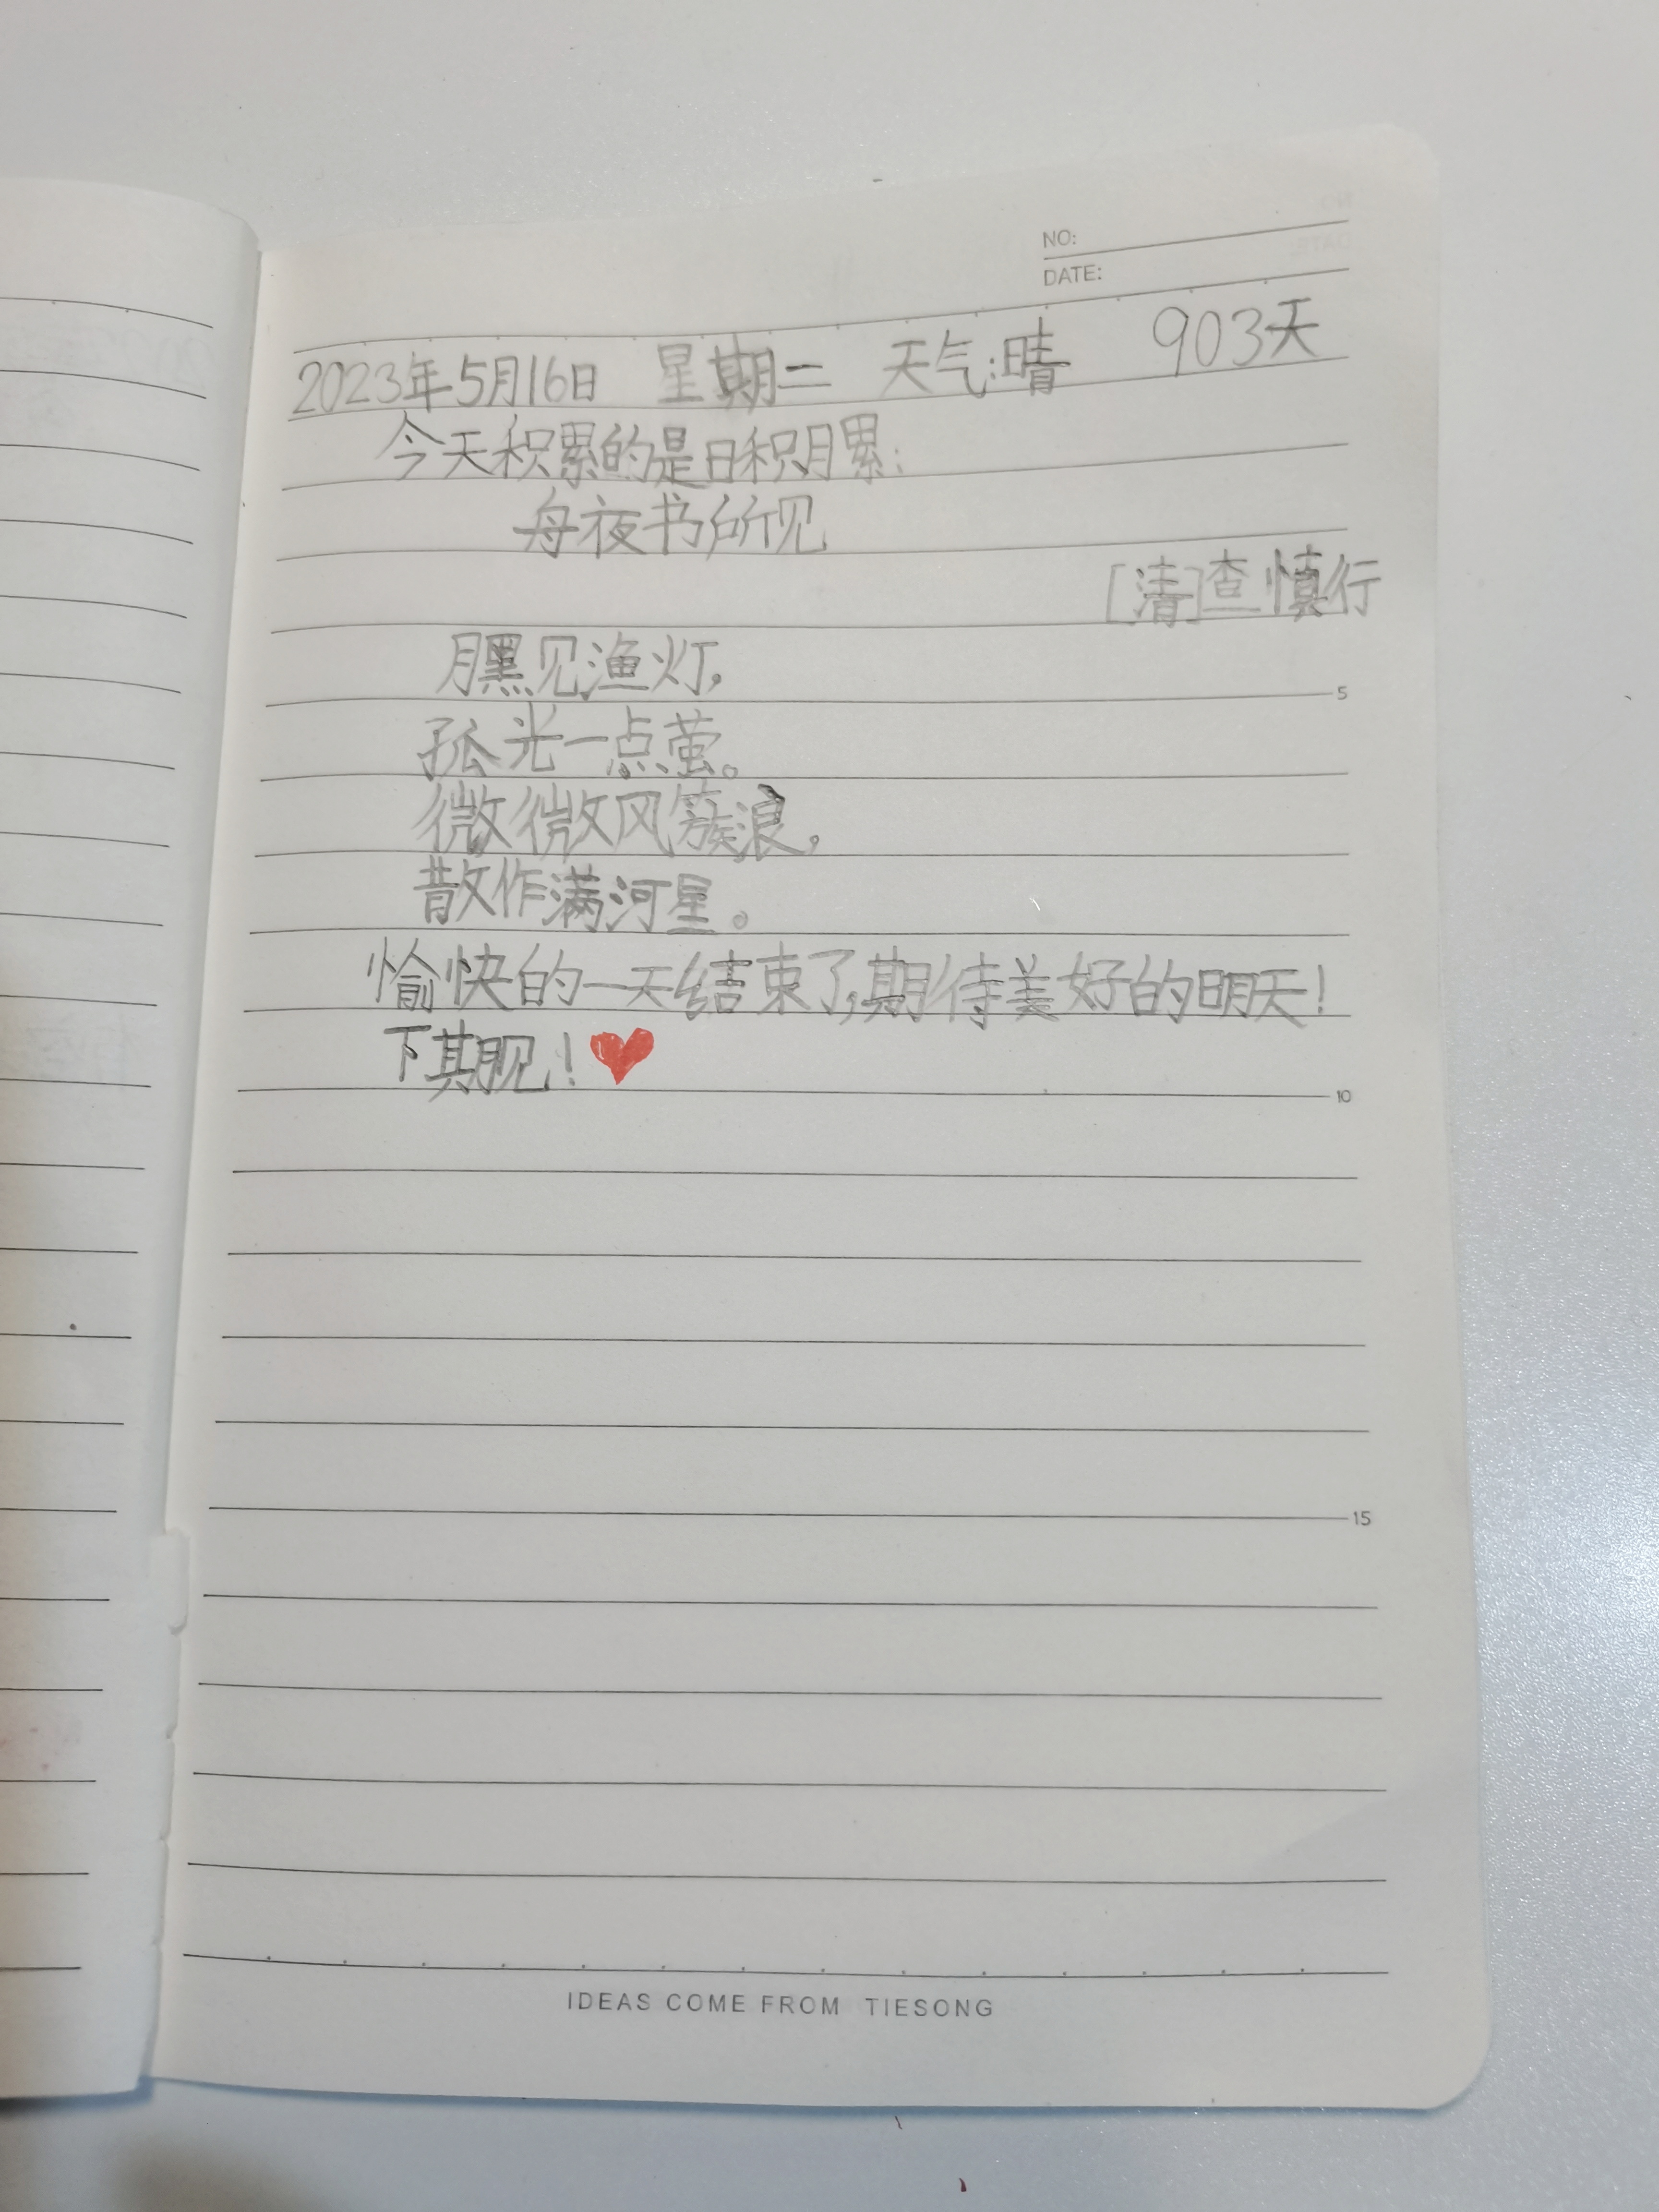 NO:
DATE:
2023年5月16日 星期二 天气:晴 903天
今天积累的是日积月累:
舟夜书所见
[清]查慎行
月黑见渔灯,
孤光一点萤。
微微风簇浪,
散作满河星。
愉快的一天结束了,期待美好的明天!
下期见!
5
10
15
IDEAS COME FROM TIESONG